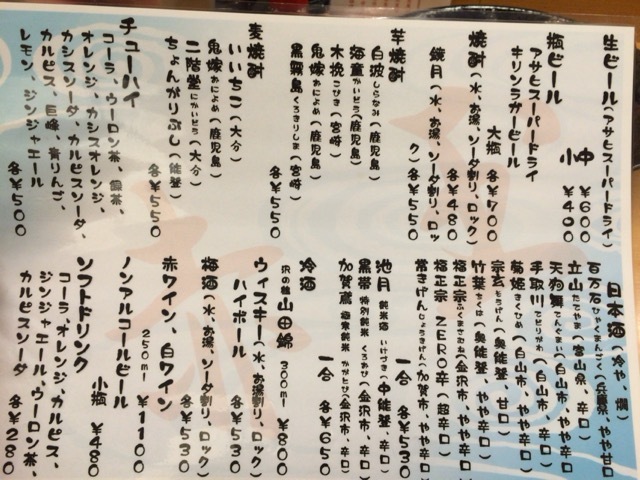 生ビール(アサヒスーパードライ)
中 ¥600
小 ¥400
瓶ビール
アサヒスーパードライ
キリンラガービール
大瓶 各¥700
焼酎(水、お湯、ソーダ割り、ロック)
各¥480
鏡月(水、お湯、ソーダ割り、ロック)各¥550
芋焼酎
白波 しらなみ(鹿児島)
海童 かいどう(鹿児島)
木挽 こびき(宮崎)
鬼嫁 おによめ(鹿児島)
黒霧島 くろきりしま(宮崎)
各¥550
麦焼酎
いいちこ(大分)
鬼嫁 おによめ(鹿児島)
二階堂 にかいどう(大分)
ちょんがりぶし(能登)
各¥550
チューハイ
コーラ、ウーロン茶、緑茶、
オレンジ、カシスオレンジ、
カシスソーダ、カルピスソーダ、
カルピス、巨峰、青りんご、
レモン、ジンジャエール
各¥550
日本酒(冷や、燗)
百万石 ひゃくまんごく(兵庫県、やや甘口
立山 たてやま(富山県、辛口)
天狗舞 てんぐまい(白山市、やや辛口
手取川 てどりがわ(白山市、辛口)
菊姫 きくひめ(白山市、やや辛口
宗玄 そうげん(奥能登、甘口)
竹葉 ちくは(奥能登、やや辛口)
福正宗 ふくまさむね(金沢市、やや辛口
福正宗 ZERO辛(超辛口)
常きげん じょうきげん(加賀市、やや辛口
一合 各¥530
池月 純米酒 いけづき(中能登、辛口
黒帯 特別純米 くろおび(金沢市、辛口
加賀鳶 極寒純米 かがとび(金沢市、辛口
一合 各¥650
冷酒
JRの蔵 山田錦 300ml ¥800
ウィスキー(水、お湯割り、ロック)
ハイボール 各¥530
梅酒(水、お湯、ソーダ割り、ロック)
各¥530
赤ワイン、白ワイン
250ml ¥1100
ノンアルコールビール
小瓶 ¥480
ソフトドリンク
コーラ、オレンジ、カルピス、
ジンジャエール、ウーロン茶、
カルピスソーダ 各¥280